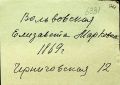 Вольвовская
Елизавета Марковна
1869г.
Черниговская 12